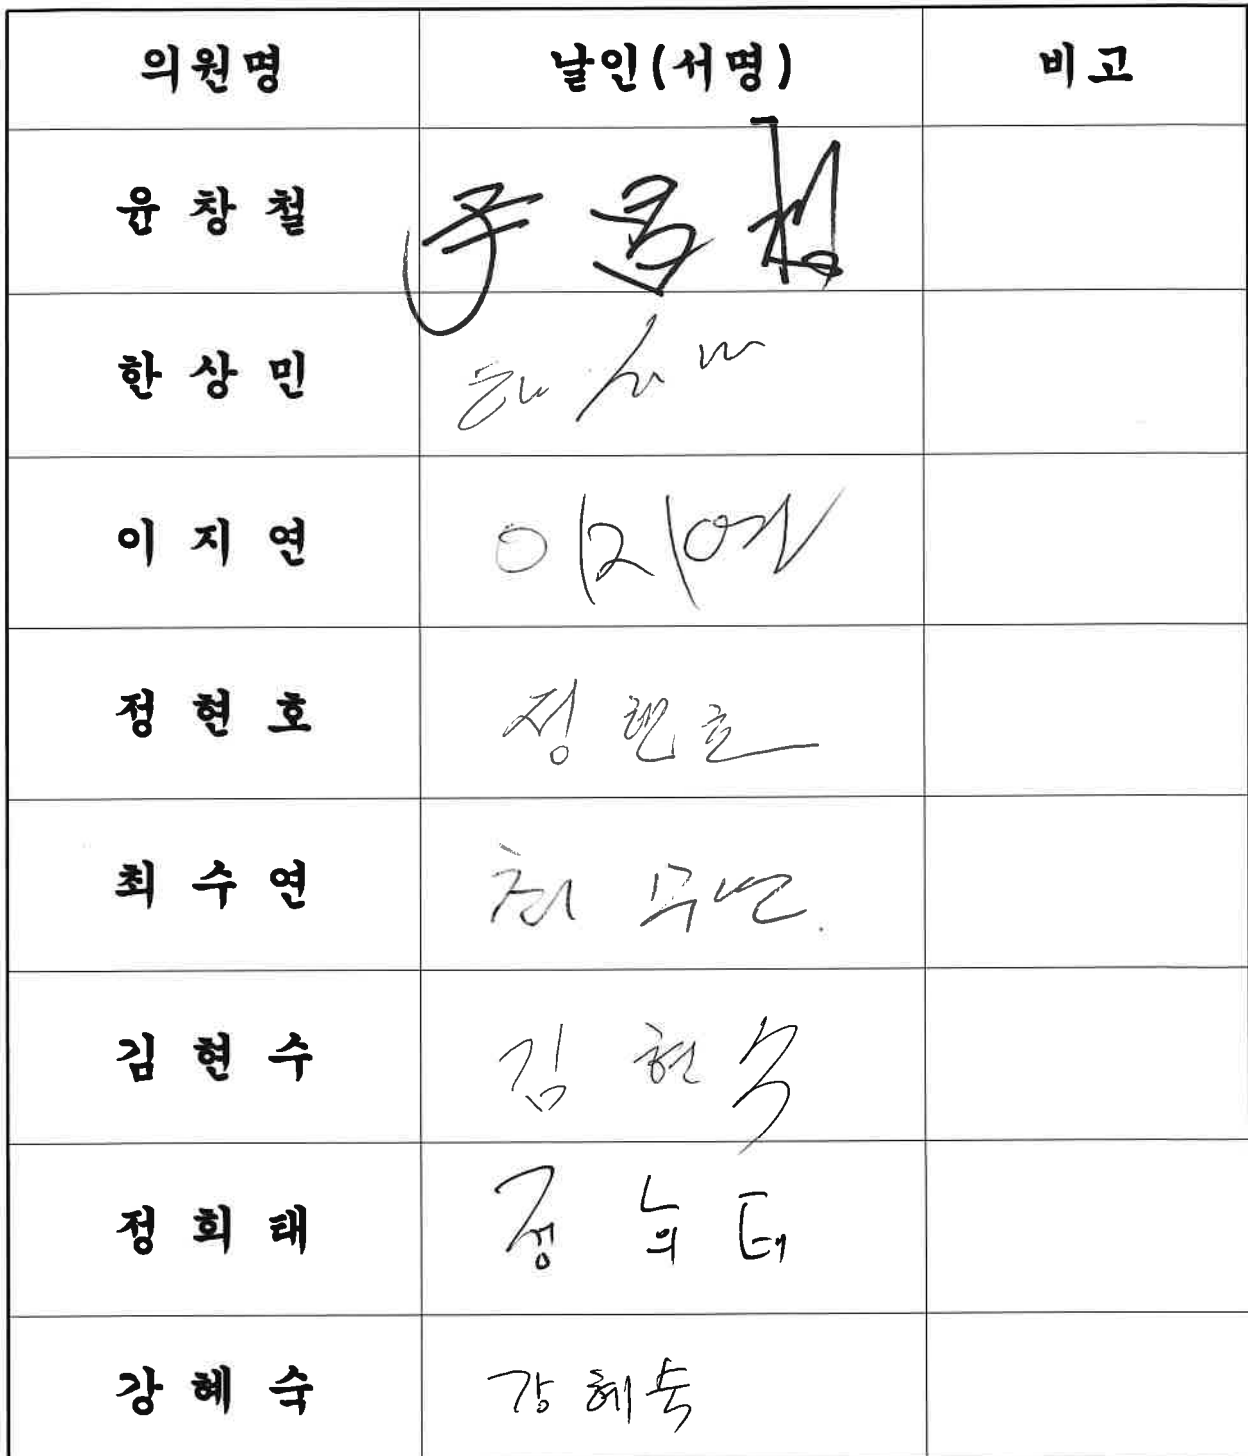 의원명 날인(서명) 비고
윤창철
한상민
이지연 이지연
정현호 정현호
최수연 최수연
김현수 김현수
정희태 정희태
강혜숙 강혜숙